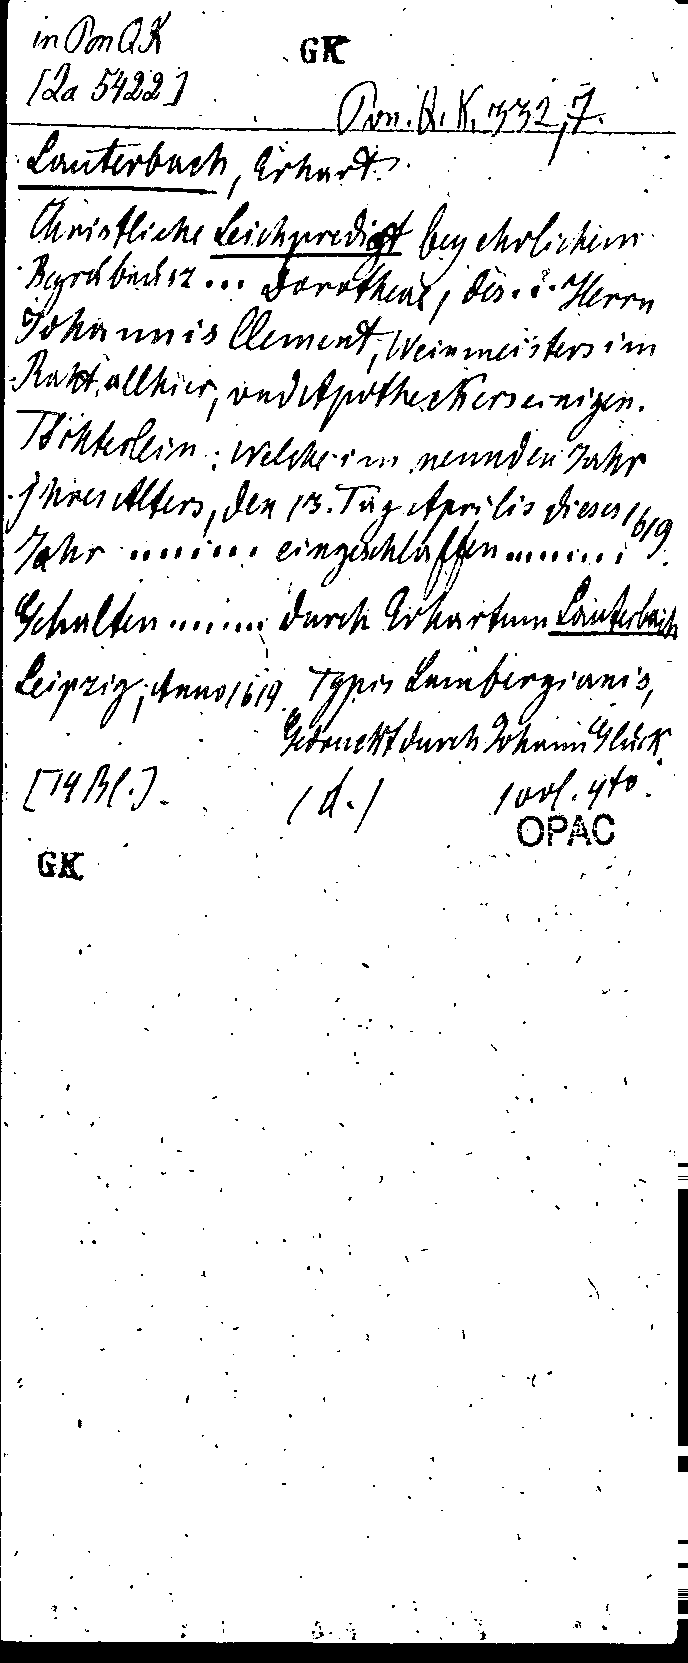 in Pon QK
GK
[Za 5422]
Pon. Q. K. 332,7.
Lauterbach, Erhart.
Christliche Leichpredigt bey ehrlichem
Begrebnis ... Dorotheae, des ... Herrn
Johannis Clement, Weinmeisters im
Raht allhier, und Apotheckers einigen
Töchterlein: welche im neunden Jahr
ihres Alters, den 13. Tag Aprilis dieses 1619
Jahr ...... eingeschlaffen .......
Gehalten ...... durch Erhartum Lauterbach
Leipzig, Anno 1619. Typis Lambergianis,
Gedruckt durch Johann Glück
[14 Bl.]. (d.) 4to.
OPAC
GK